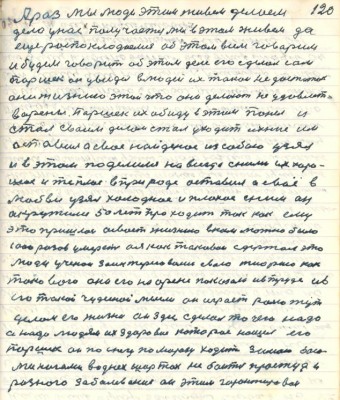 120
А раз мы люди этим живем делаем
дело у нас получается мы в этом живем да
еще располождаемся об этом всем говорим
и будем говорить об этом деле его сделал сам
Паршек он увидел в людей их таков недостаток
они жизнию этой это они делают не удовлет-
ворены. Паршек их обиду в этим понял и
стал своим делом стал уходить ихнее им
оставил а свое найденое из собою узял
и в этом поделился на всегда с ними их хоро-
шее и теплое в природе оставил а своё в
любви узял холодное и плохое с ним он
окружился 50 лет проходит так как ему
это пришлося
1000 разов умереть а я как таковой сдержал это
люди ученые заинтересованы
такового оно его на арене показали и в труде и в
его такой чудиной мысли он играет роль тут
делает его жизни он здесь сделал то чего надо
а надо людям их здоровие которое нашел его
Паршек он по снегу по морозу ходит зимою босо-
ми ногами в одних шортах не боится простуд и
разного заболевания он этим гарантирован